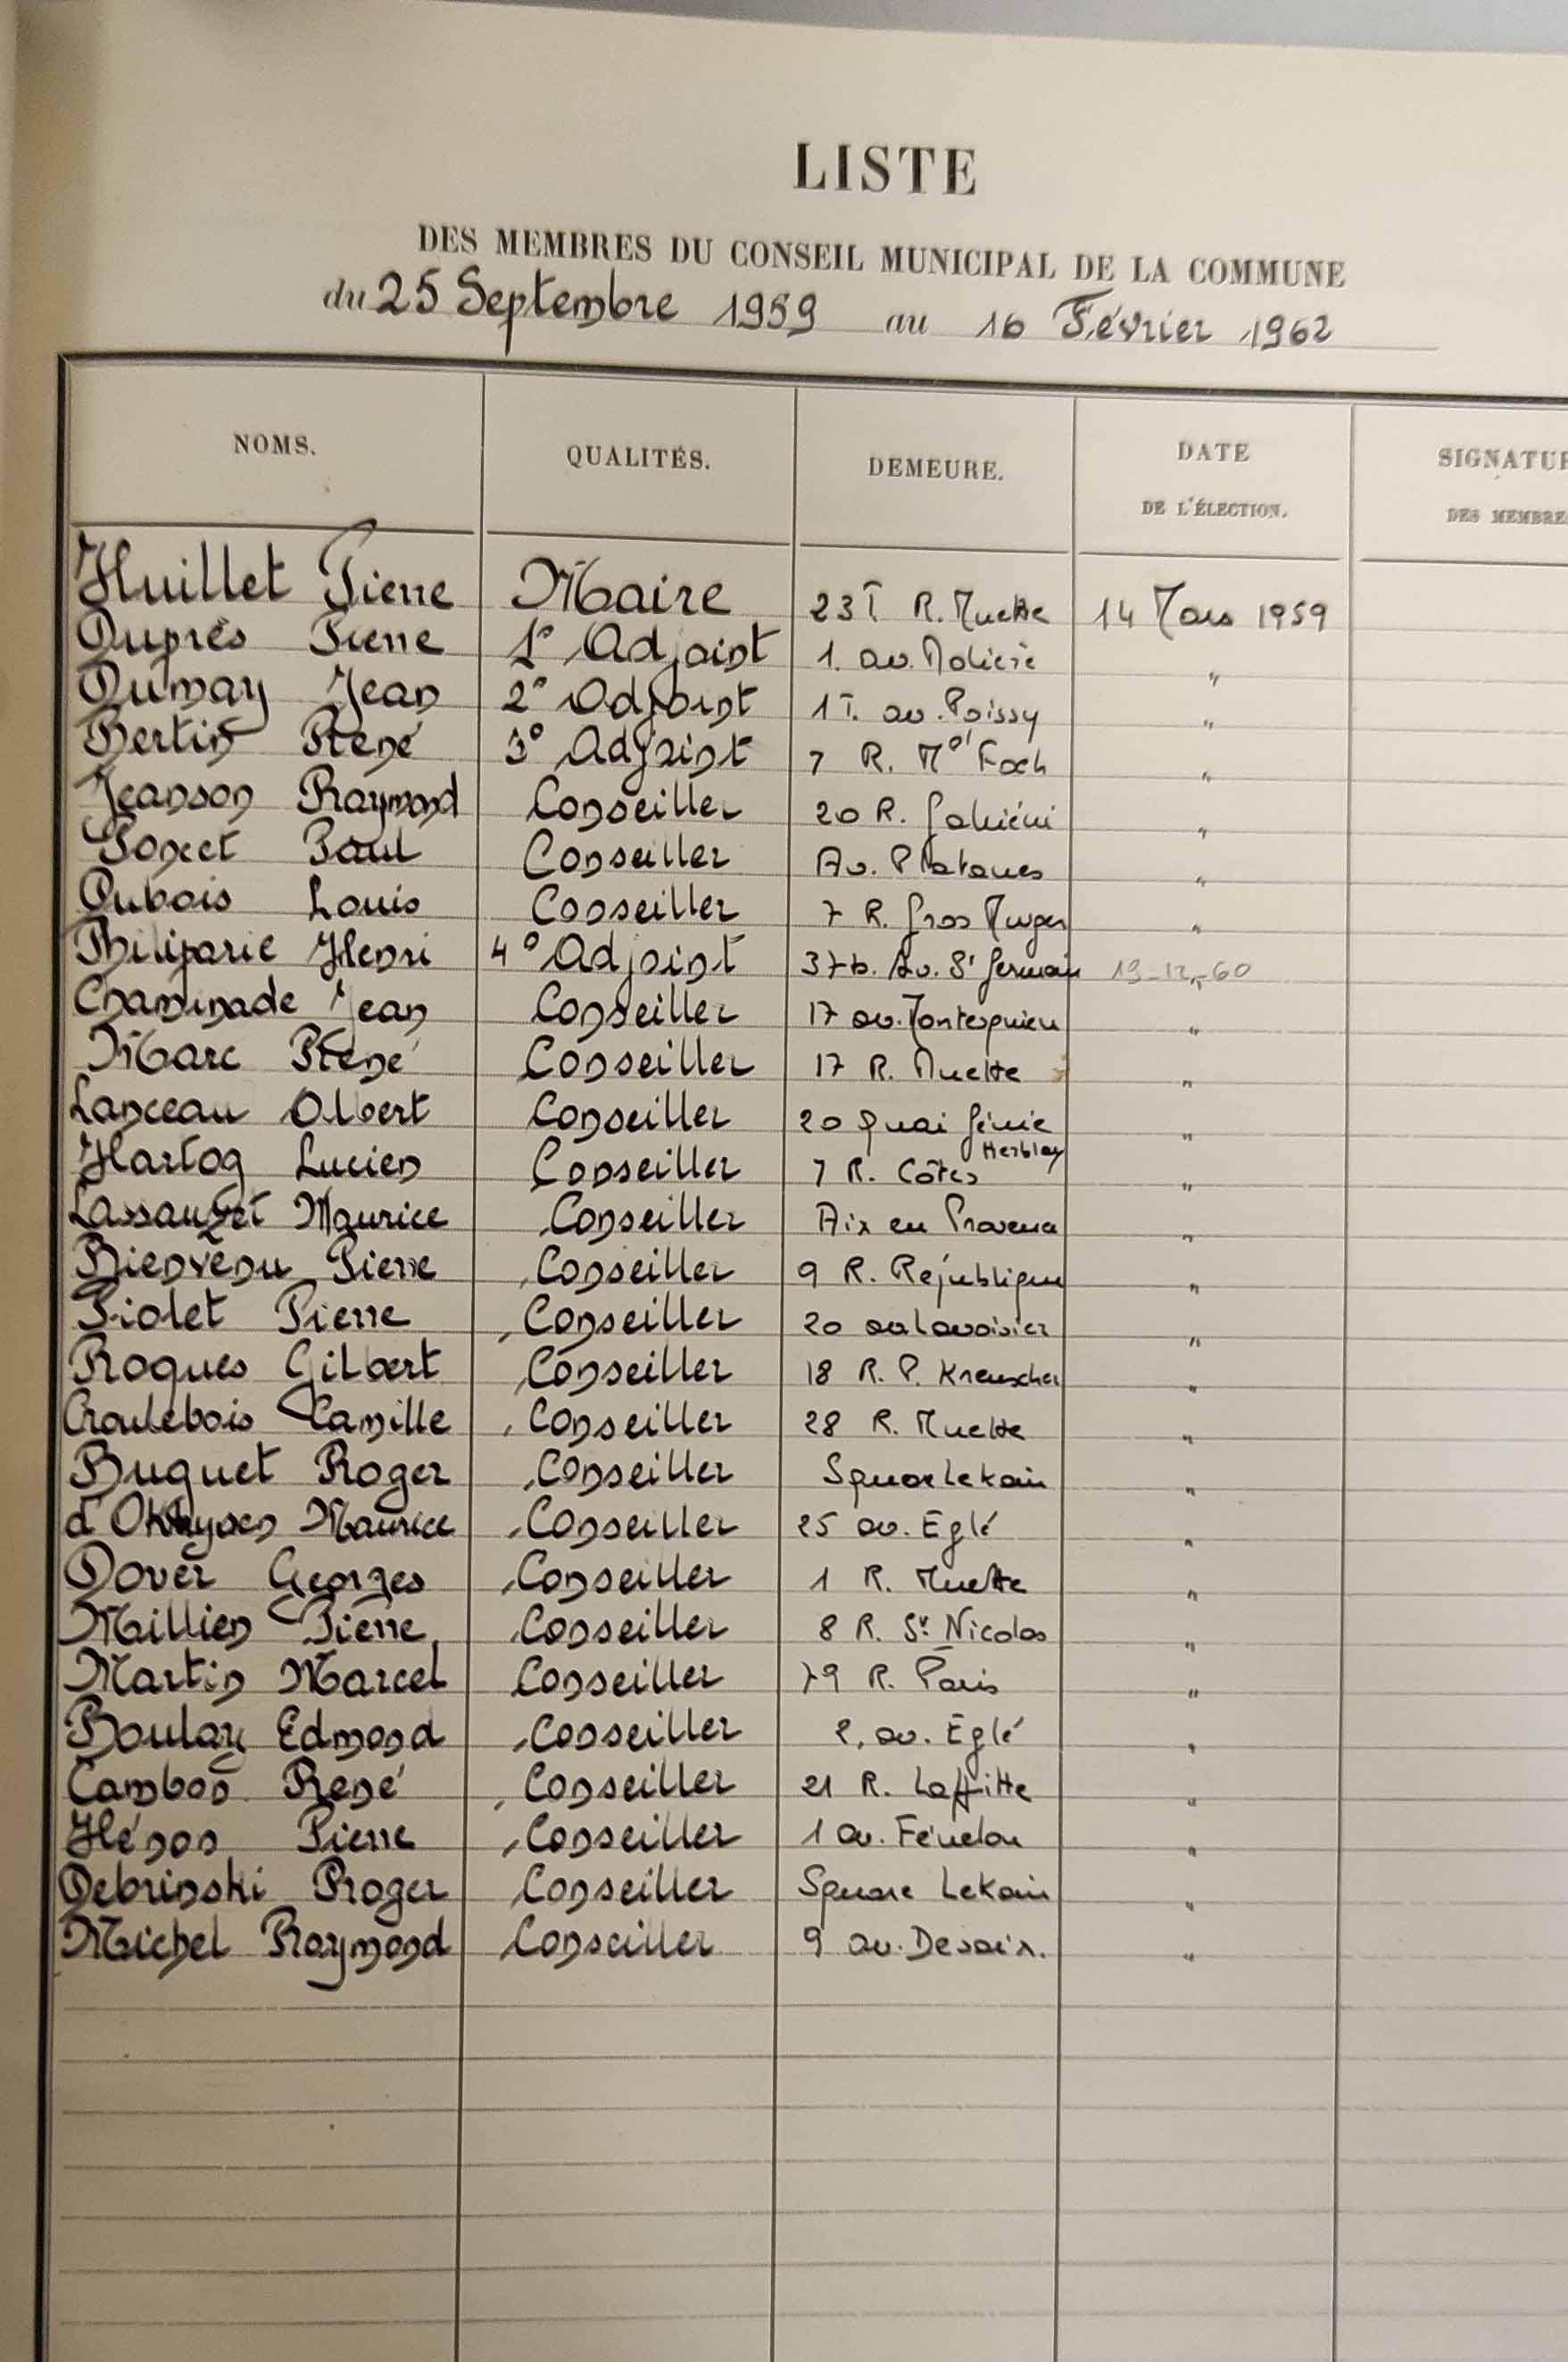 LISTE
DES MEMBRES DU CONSEIL MUNICIPAL DE LA COMMUNE
du 25 Septembre 1959 au 16 Février 1962
NOMS. QUALITÉS. DEMEURE. DATE DE L'ÉLECTION. SIGNATUR DES MEMBRE
Huillet Pierre Maire 23T R. Muette 14 Mars 1959
Duprés Pierre 1º Adjoint 1. av. Molière "
Dumay Jean 2º Adjoint 1T. av. Poissy "
Bertin René 3º Adjoint 7 R. Mal Foch "
Jeanson Raymond Conseiller 20 R. Galliéni "
Poncet Paul Conseiller Av. Platanes "
Dubois Louis Conseiller 7 R. Gros Murger "
Philiparie Henri 4º Adjoint 37b. Av. St Germain 19-12-60 "
Chaminade Jean Conseiller 17 av. Montesquieu "
Marc René Conseiller 17 R. Muette "
Lanceau Albert Conseiller 20 Quai Génie "
Hartog Lucien Conseiller 7 R. Côtes Herblay "
Lassauzet Maurice Conseiller Aix en Provence "
Bienvenu Pierre Conseiller 9 R. République "
Piolet Pierre Conseiller 20 av Lavoisier "
Roques Gilbert Conseiller 18 R. P. Kreuscher "
Croulebois Camille Conseiller 28 R. Muette "
Buquet Roger Conseiller Square Lekain "
Maurice Conseiller 25 av. Eglé "
Dover Georges Conseiller 1 R. Muette "
Millien Pierre Conseiller 8 R. St Nicolas "
Martin Marcel Conseiller 79 R. Paris "
Boulay Edmond Conseiller 2, av. Eglé "
Cambon René Conseiller 21 R. Laffitte "
Hénon Pierre Conseiller 1 av. Fénelon "
Debrinski Roger Conseiller Square Lekain "
Michel Raymond Conseiller 9 av. Desaix. "